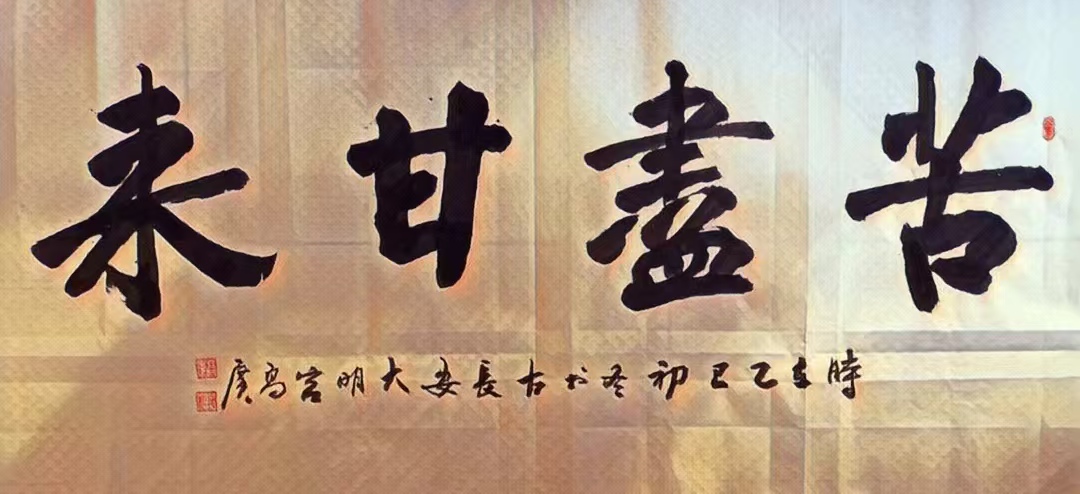 苦盡甘來
時在乙巳初冬於古長安大明宮高廣